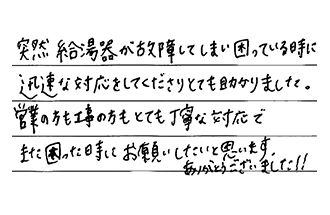 突然給湯器が故障してしまい困っている時に
迅速な対応をしてくださりとても助かりました。
営業の方も工事の方もとても丁寧な対応で
また困った時にお願いしたいと思います。
ありがとうございました!!